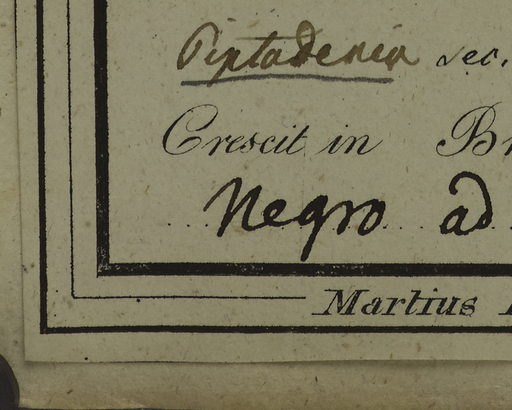 Piptadenia sec.
Crescit in Br
Negro ad
Martius